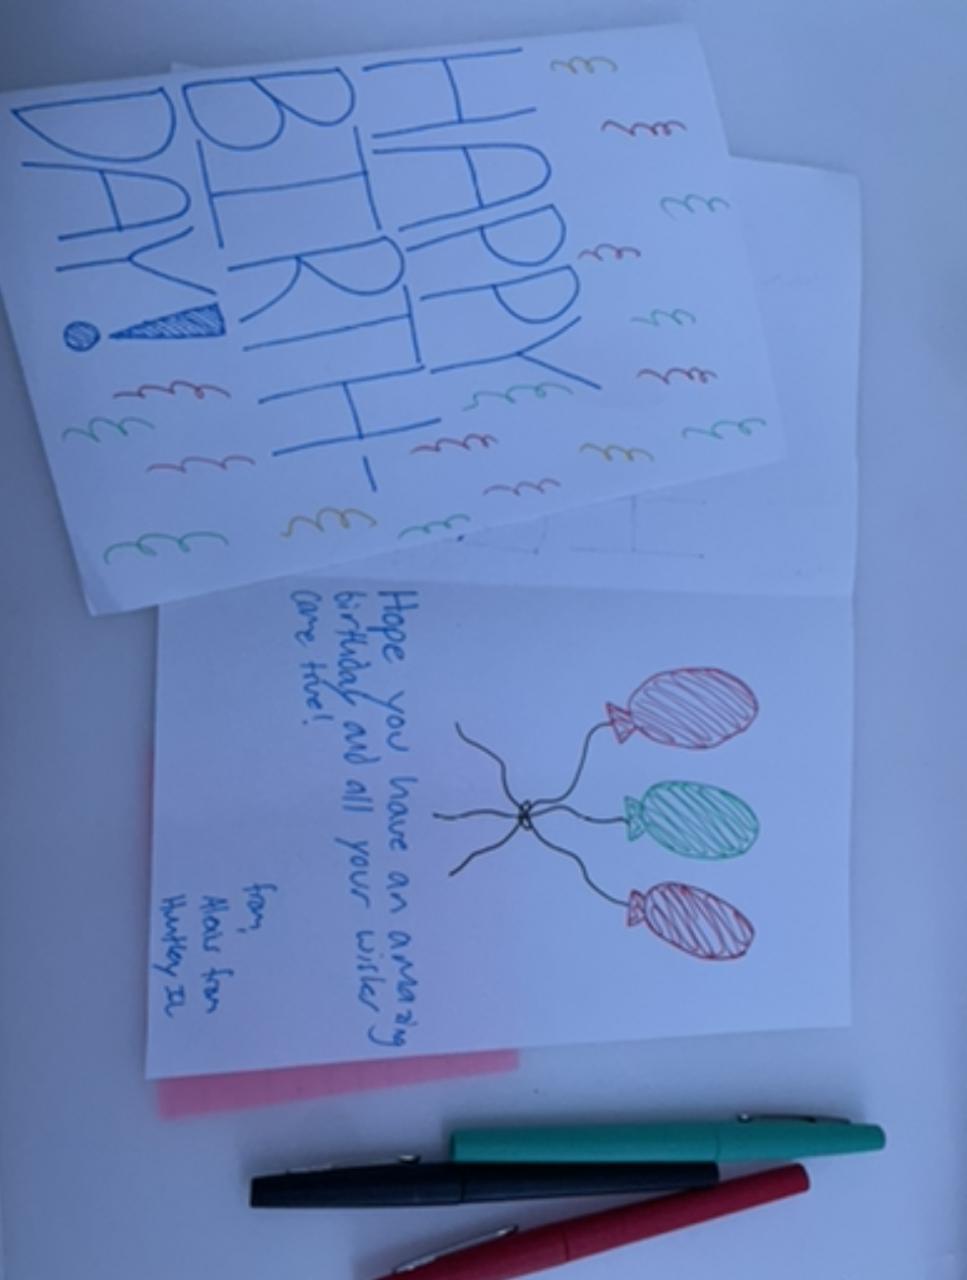 HAPPY
BIRTH-
DAY!
Hope you have an amazing
birthday and all your wishes
come true!
from,
Alexis from
Huntley IL